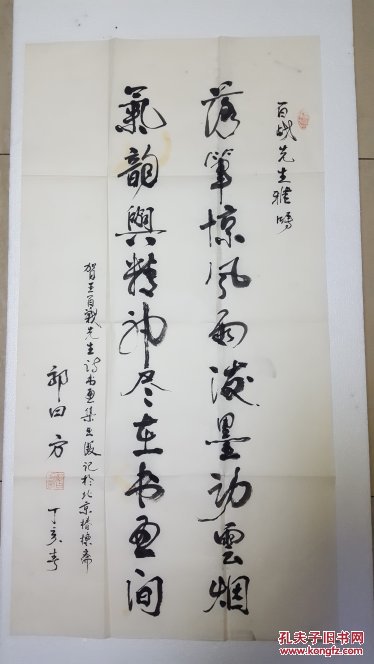 百战先生雅嘱
落筆惊風雨泼墨动雲烟
氣韻與精神尽在书画间
贺王百戰先生诗书画集出版记於北京
郭曰方
丁亥春
孔夫子旧书网
www.kongfz.com